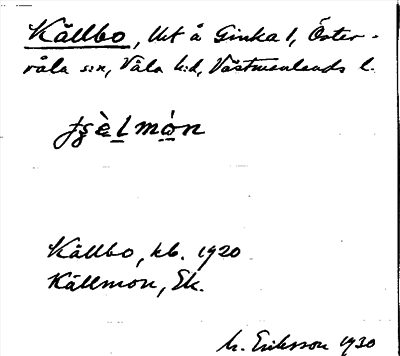 Källbo, lht å Ginka 1, Öster-
våla s:n, Våla h:d, Västmanlands l.
Källbo, hb. 1920
Källmon, Ek.
M. Eriksson 1930